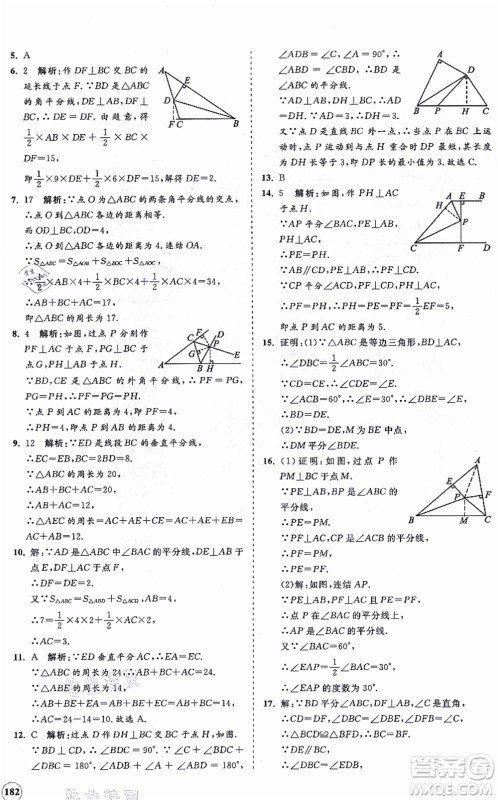 5. A
6. 2 解析:作 DF⊥BC 交 BC 的
延长线于点 F. ∵BD 是∠ABC
的角平分线, DE⊥AB, DF⊥
BC, ∴DE=DF. 由题意, 得
1/2×AB×DE+1/2×BC×
DF=15,
即1/2×9×DE+1/2×6×DE=15, 解得 DE=2.
7. 17 解析:∵点 O 为△ABC 的两条角平分线的交点,
∴点 O 到△ABC 各边的距离相等.
而 OD⊥BC, OD=4,
∴点 O 到△ABC 各边的距离为 4.
∵S△ABC=S△AOB+S△BOC+S△AOC,
∴1/2×AB×4+1/2×AC×4+1/2×BC×4=34,
∴AB+BC+AC=17,
即△ABC 的周长为 17.
8. 4 解析:如图, 过点 P 分别作
PF⊥AB 于点 F, PG⊥BC 于点
G, PH⊥AC 于点 H.
∵BD, CE 是△ABC 的外角平分线, ∴PF=PG,
PG=PH.
∵点 P 到 AC 的距离为 4, ∴PH=4, ∴PF=4,
即点 P 到 AB 的距离为 4.
9. 12 解析:∵ED 是线段 BC 的垂直平分线,
∴EC=EB. ∵△ABC 的周长为 20,
∴AB+AC+BC=20. ∵BC=2BD=8,
∴AB+AC=12,
∴△AEC 的周长=AC+AE+EC=AE+EB+AC=
AB+AC=12.
10. 解:∵AD 是△ABC 中的平分线,
DE⊥AB 于点 E, DF⊥AC 交 AC 于点 F,
∴DF=DE=2.
又∵S△ABC=S△ABD+S△ACD, AB=4,
∴7=1/2×4×2+1/2×AC×2,
∴AC=3.
11. A 解析:∵ED 垂直平分 AC, ∴EA=EC.
∵△ABC 的周长为 24, ∴AB+BC+AC=24.
∵△EBC 的周长为 14, ∴BE+EC+BC=14,
∴BE+EA+BC=14, ∴AB+BC=14,
∴AC=24-14=10. 故选 A.
∠ADB=∠C, ∠A=90°, ∴∠ABD=
∠CBD.
∵DA⊥AB, DH⊥BC,
∴AD=DH. 又∵AD=3,
∴DH=3. ∵点 D 是直线 BC 外一点, ∴当点 P 在 BC 上运
动时, 点 P 运动到与点 H 重合时 DP
最短, 其长度为 DH 的长等于 3,
即 DP 长的最小值为 3.
13. B
14. 5 解析:如图, 作 PF⊥AC
于点 F.
∵AB∥CD, PE⊥AB,
∴PE⊥CD.
∵AP 平分∠BAC, PE⊥
AB, PF⊥AC, ∴PF=PE.
∵CP 平分∠ACD, ∴PF=PD=1/2EF=5,
即点 P 到 AC 的距离为 5.
15. 证明:(1)∵△ABC 是等边三角形, BD⊥AC,
∴∠DBC=1/2∠ABC=1/2×60°=30°.
∵∠ACB=60°, ∴∠CDF=30°,
∴∠DBC=∠CDF.
(2)∵DF⊥BC, DE⊥AB, DE=DF,
∴BD 平分∠ABC.
16. (1)证明:如图, 过点 P 作
PM⊥BC 于点 M.
∵BP 是∠ABC 的平分线,
∴PD=PM.
同理, PM=PE, ∴PD=PE.
(2)解:如图, 连接 AP.
∵PD⊥AB, PE⊥AC, PD=PE,
∴点 P 在∠BAC 的平分线上,
∴AP 是∠BAC 的平分线,
∴∠EAP=1/2∠BAC. ∵∠BAC=60°,
∴∠EAP=1/2∠BAC=30°,
∴∠EAP 的度数为 30°.
17. 解:∵BD 平分∠ABC, ∠ABC 是直角,
∴∠DBC=1/2∠ABC=1/2×90°=45°.
182